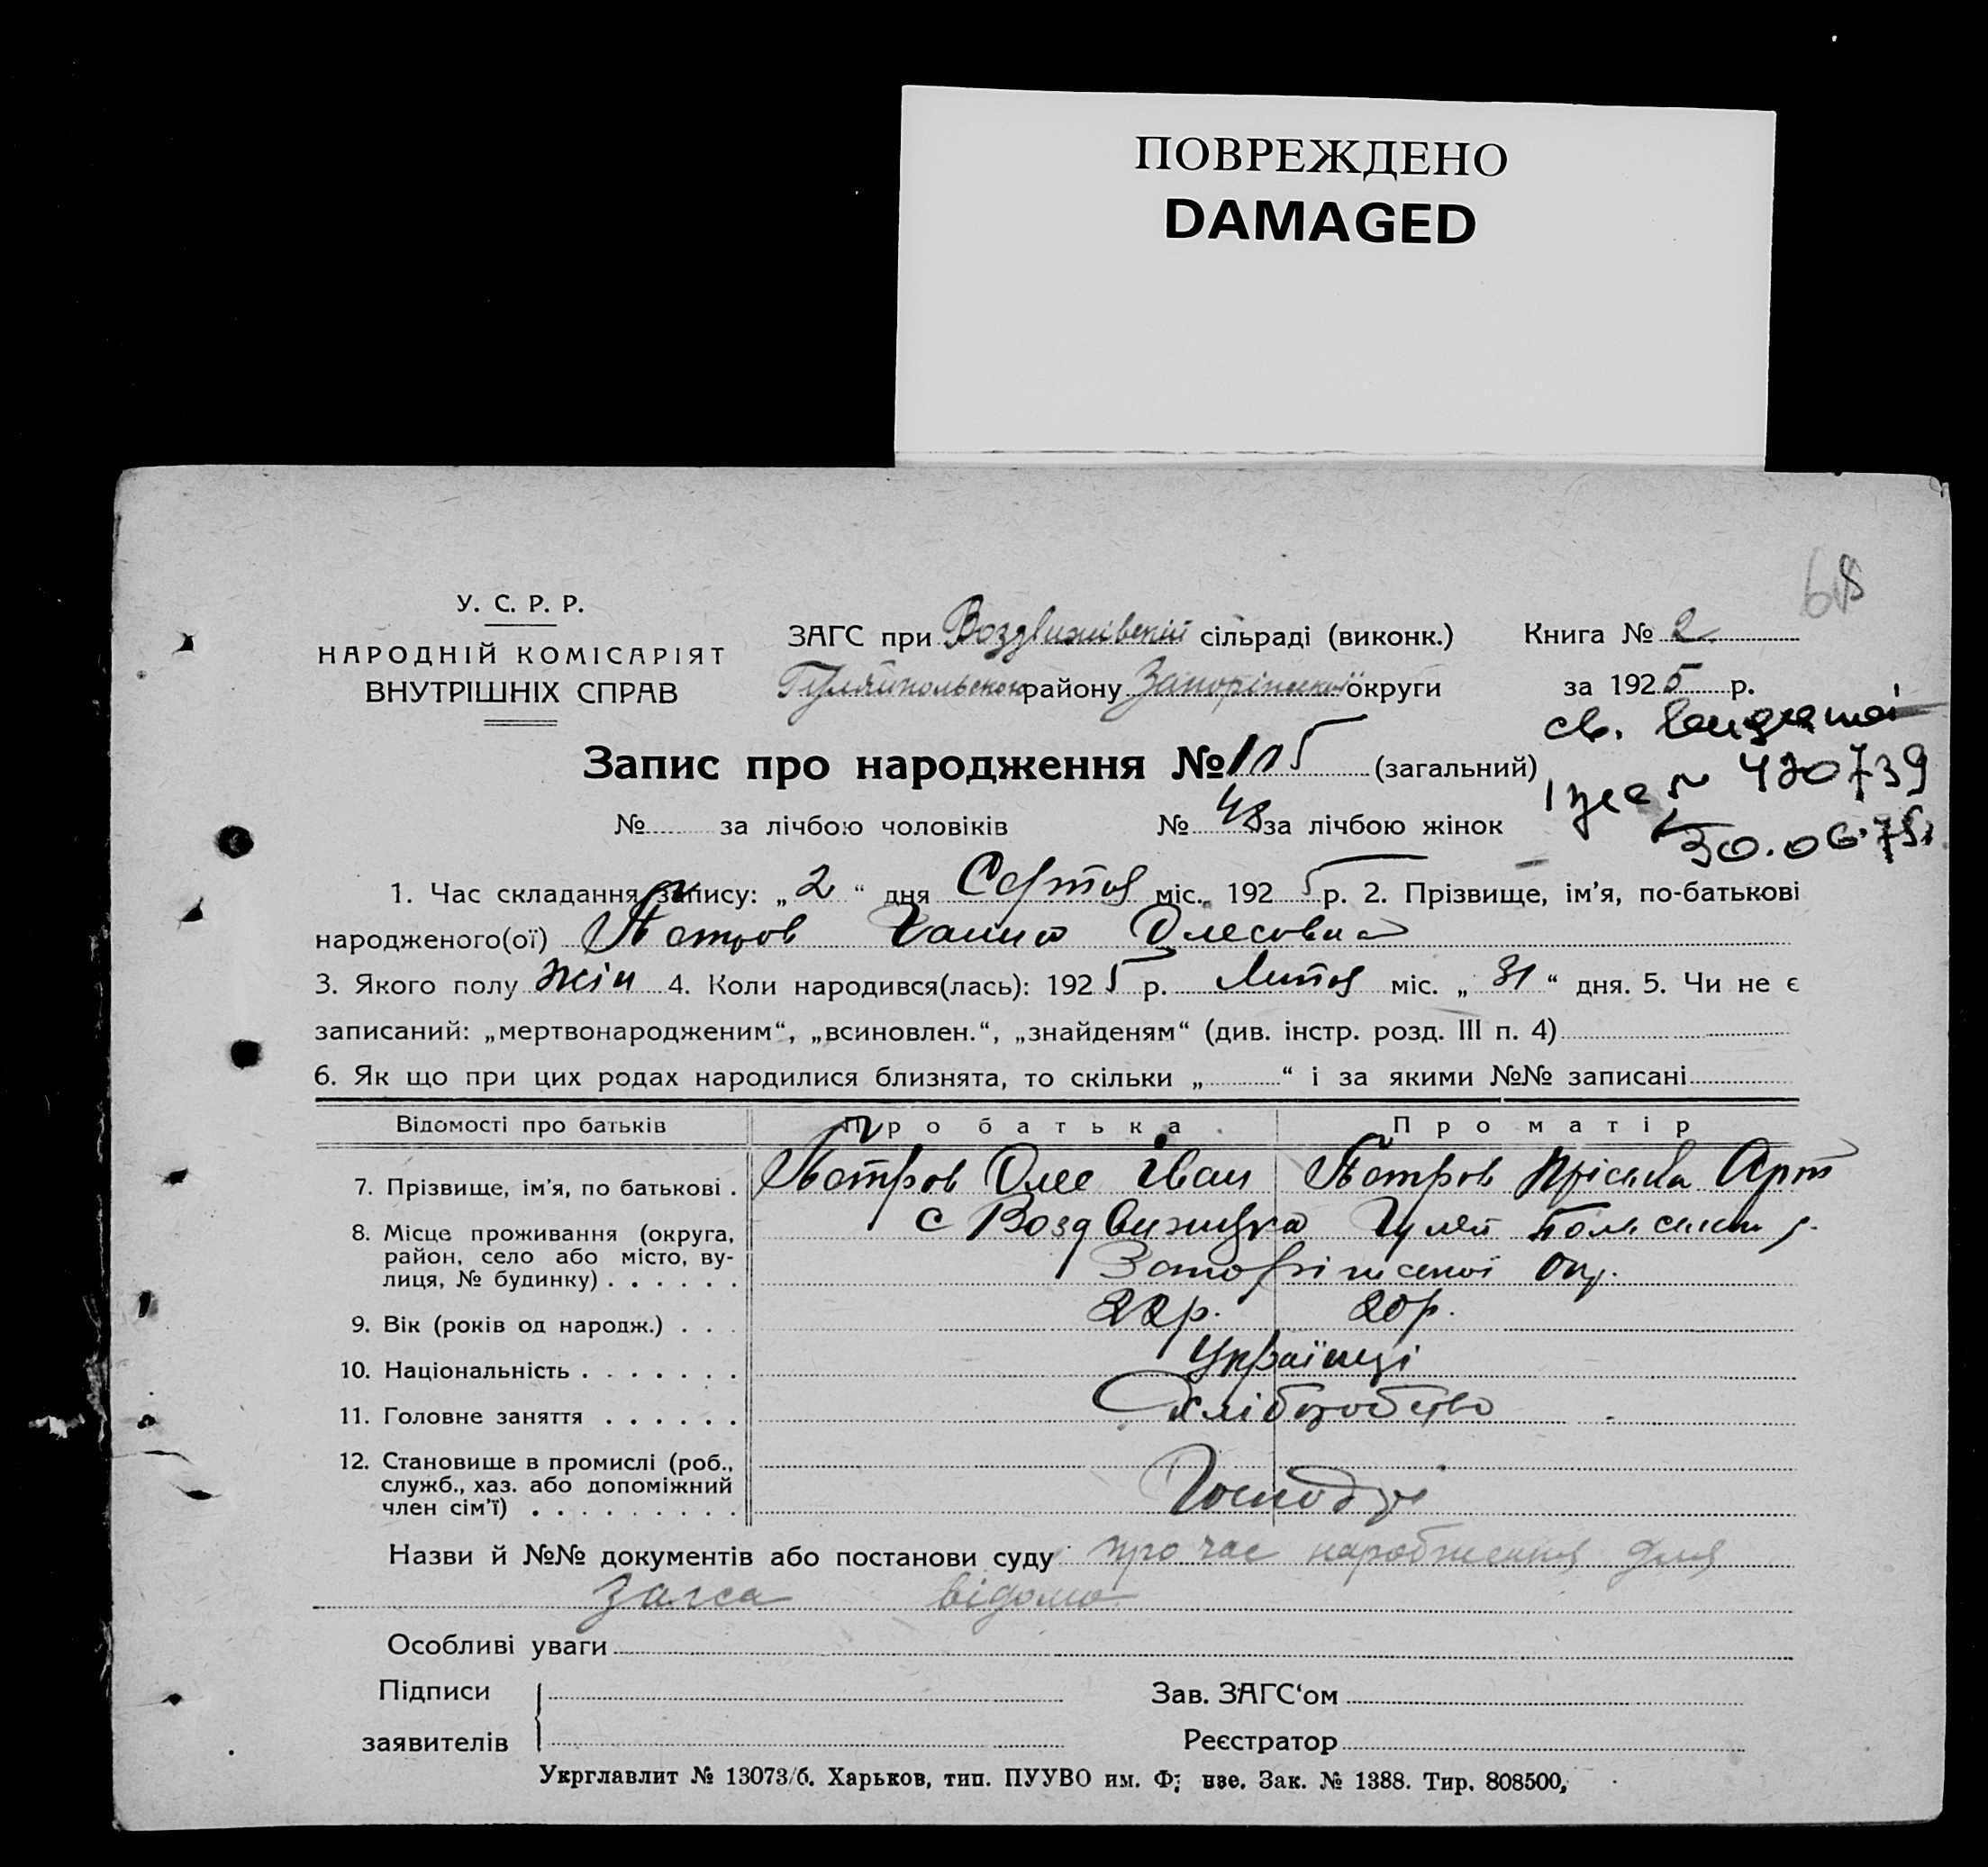 ПОВРЕЖДЕНО
DAMAGED
68
У. С. Р. Р.
НАРОДНІЙ КОМІСАРІЯТ
ВНУТРІШНІХ СПРАВ
ЗАГС при Воздвижівській сільраді (виконк.)
Книга № 2
Гуляйпольського району Запоріжської округи
за 1925 р.
Запис про народження № 105 (загальний)
№ 430739
30.06.75
№ за лічбою чоловіків № 48 за лічбою жінок
1. Час складання запису: „ 2 “ дня міс. 1925 р. 2. Прізвище, ім'я, по-батькові
народженого(ої) Петров Ганна Олесовна
3. Якого полу жін 4. Коли народився(лась): 1925 р. міс. „ 31 “ дня. 5. Чи не є
записаний: „мертвонародженим“, „всиновлен.“, „знайденям“ (див. інстр. розд. III п. 4)
6. Як що при цих родах народилися близнята, то скільки „ “ і за якими №№ записані
Відомості про батьків Про батька. Про матір
7. Прізвище, ім'я, по батькові . Петров Олес Іван Петров Пріська Арт
8. Місце проживання (округа, с Воздвижівка Гуляй
район, село або місто, ву- Запоріжської Окр.
лиця, № будинку) . . . . . .
9. Вік (років од народж.) . . . 22р. 20р.
10. Національність . . . . . . . Українці
11. Головне заняття . . . . . . хлібороб­ство
12. Становище в промислі (роб.,
служб., хаз. або допоміжний
член сім'ї) . . . . . . . . .
Назви й №№ документів або постанови суду про час народження для
загса відомо
Особливі уваги
Підписи
заявителів
Зав. ЗАГС'ом
Реєстратор
Укрглавлит № 13073/б. Харьков, тип. ПУУВО им. Зак. № 1388. Тир. 808500,